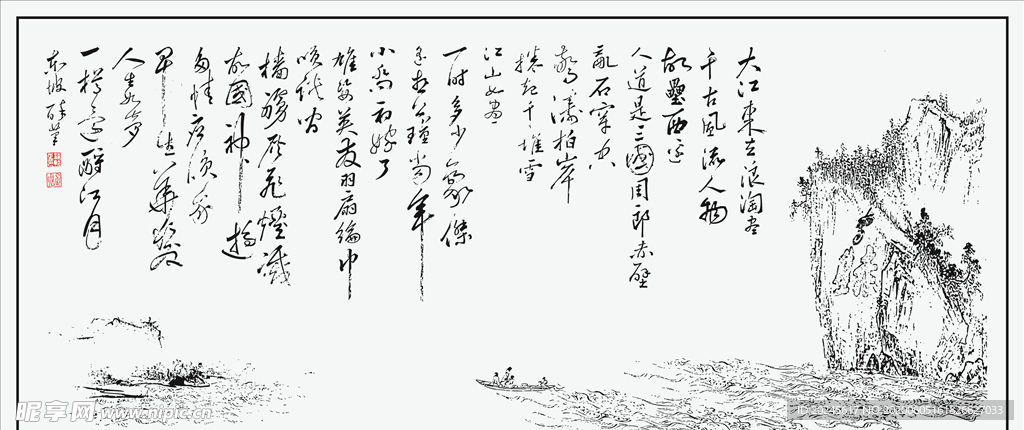 大江東去浪淘盡
千古風流人物
故壘西邊
人道是三國周郎赤壁
亂石穿空
驚濤拍岸
捲起千堆雪
江山如畫
一时多少豪傑
遙想公瑾當年
小喬初嫁了
雄姿英發羽扇綸巾
笑談間
檣艣灰飛煙滅
故國神遊
多情應笑我
早生華髮
人生如夢
一樽還酹江月
東坡醉筆
昵享网 www.nipic.cn